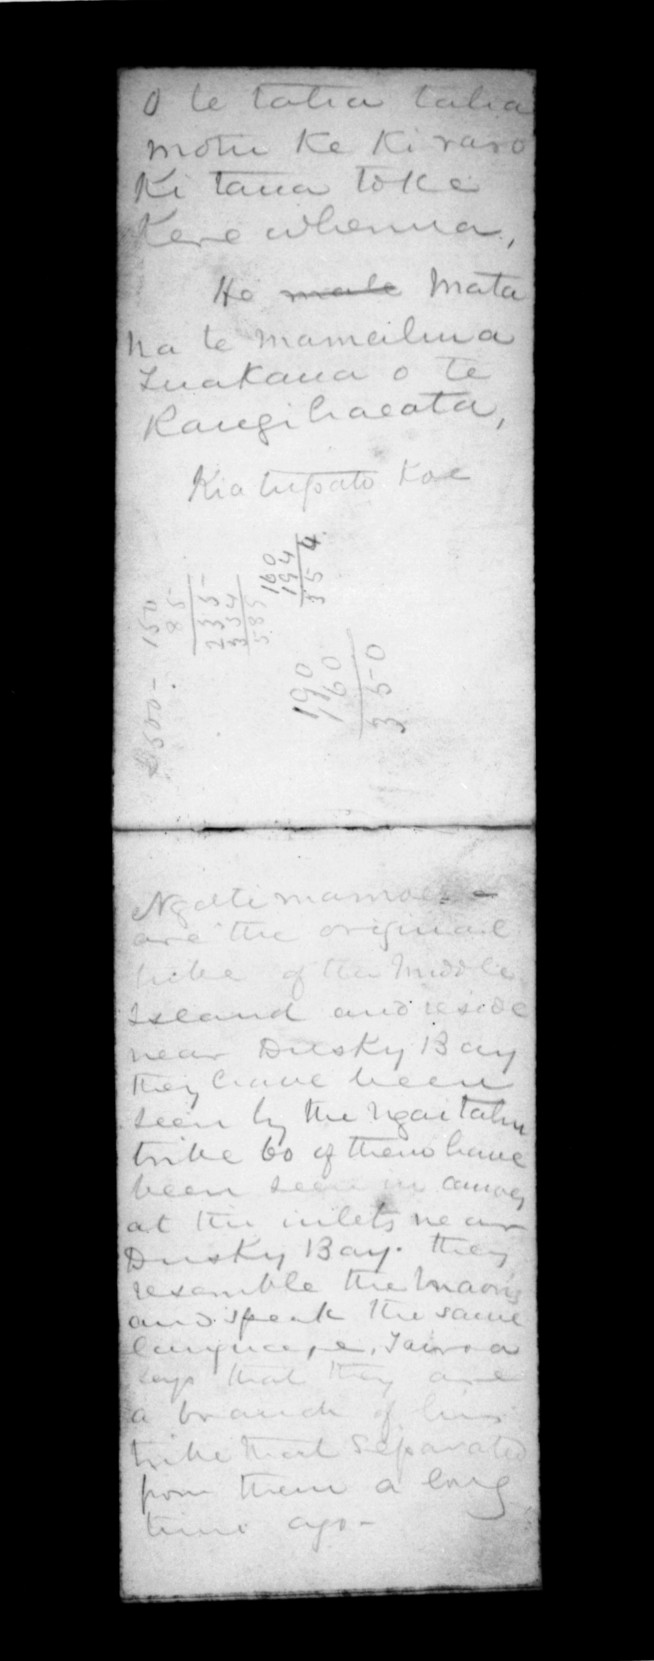 O te taha taha
motu Ke Ki raro
Ki taua toka
Kere whenua,
He mate Mata
na te mamaihua
Tuakana o te
Rangihaeata,
Kia tupato Koe
160
194
354
150
85
235
354
585
£500-
190
160
350
Ngatimamoe -
are the original
tribe of the Middle
Island and reside
near Dusky Bay
they have been
seen by the Ngaitahu
tribe 60 of them have
been seen in canoes
at the inlets near
Dusky Bay. they
resemble the Maoris
and speak the same
language, Taiaroa
says that they are
a branch of his
tribe that separated
from them a long
time ago -